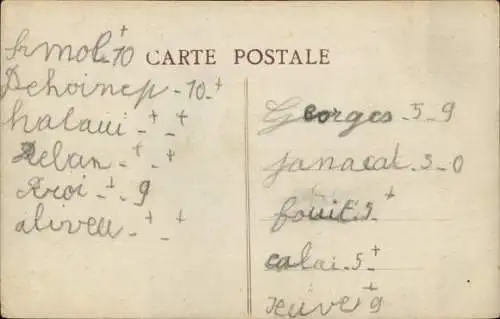 CARTE POSTALE
mol - 10 +
Dehoinep - 10 - +
halaui - + - +
Delan - + - +
+ - 9
aliveu - + - +
Georges - 5 - 9
janacal - 3 - 0
fouit 5 - +
calai - 5 - +
+ 9